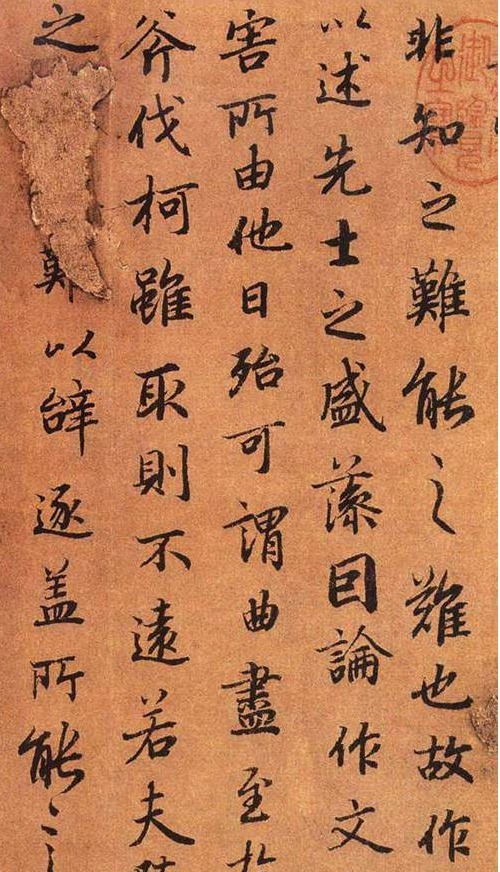 非知之難能之難也故作
以述先士之盛藻因論作文
害所由他日殆可謂曲盡至
斧伐柯雖取則不遠若夫
之難以辭逐盖所能